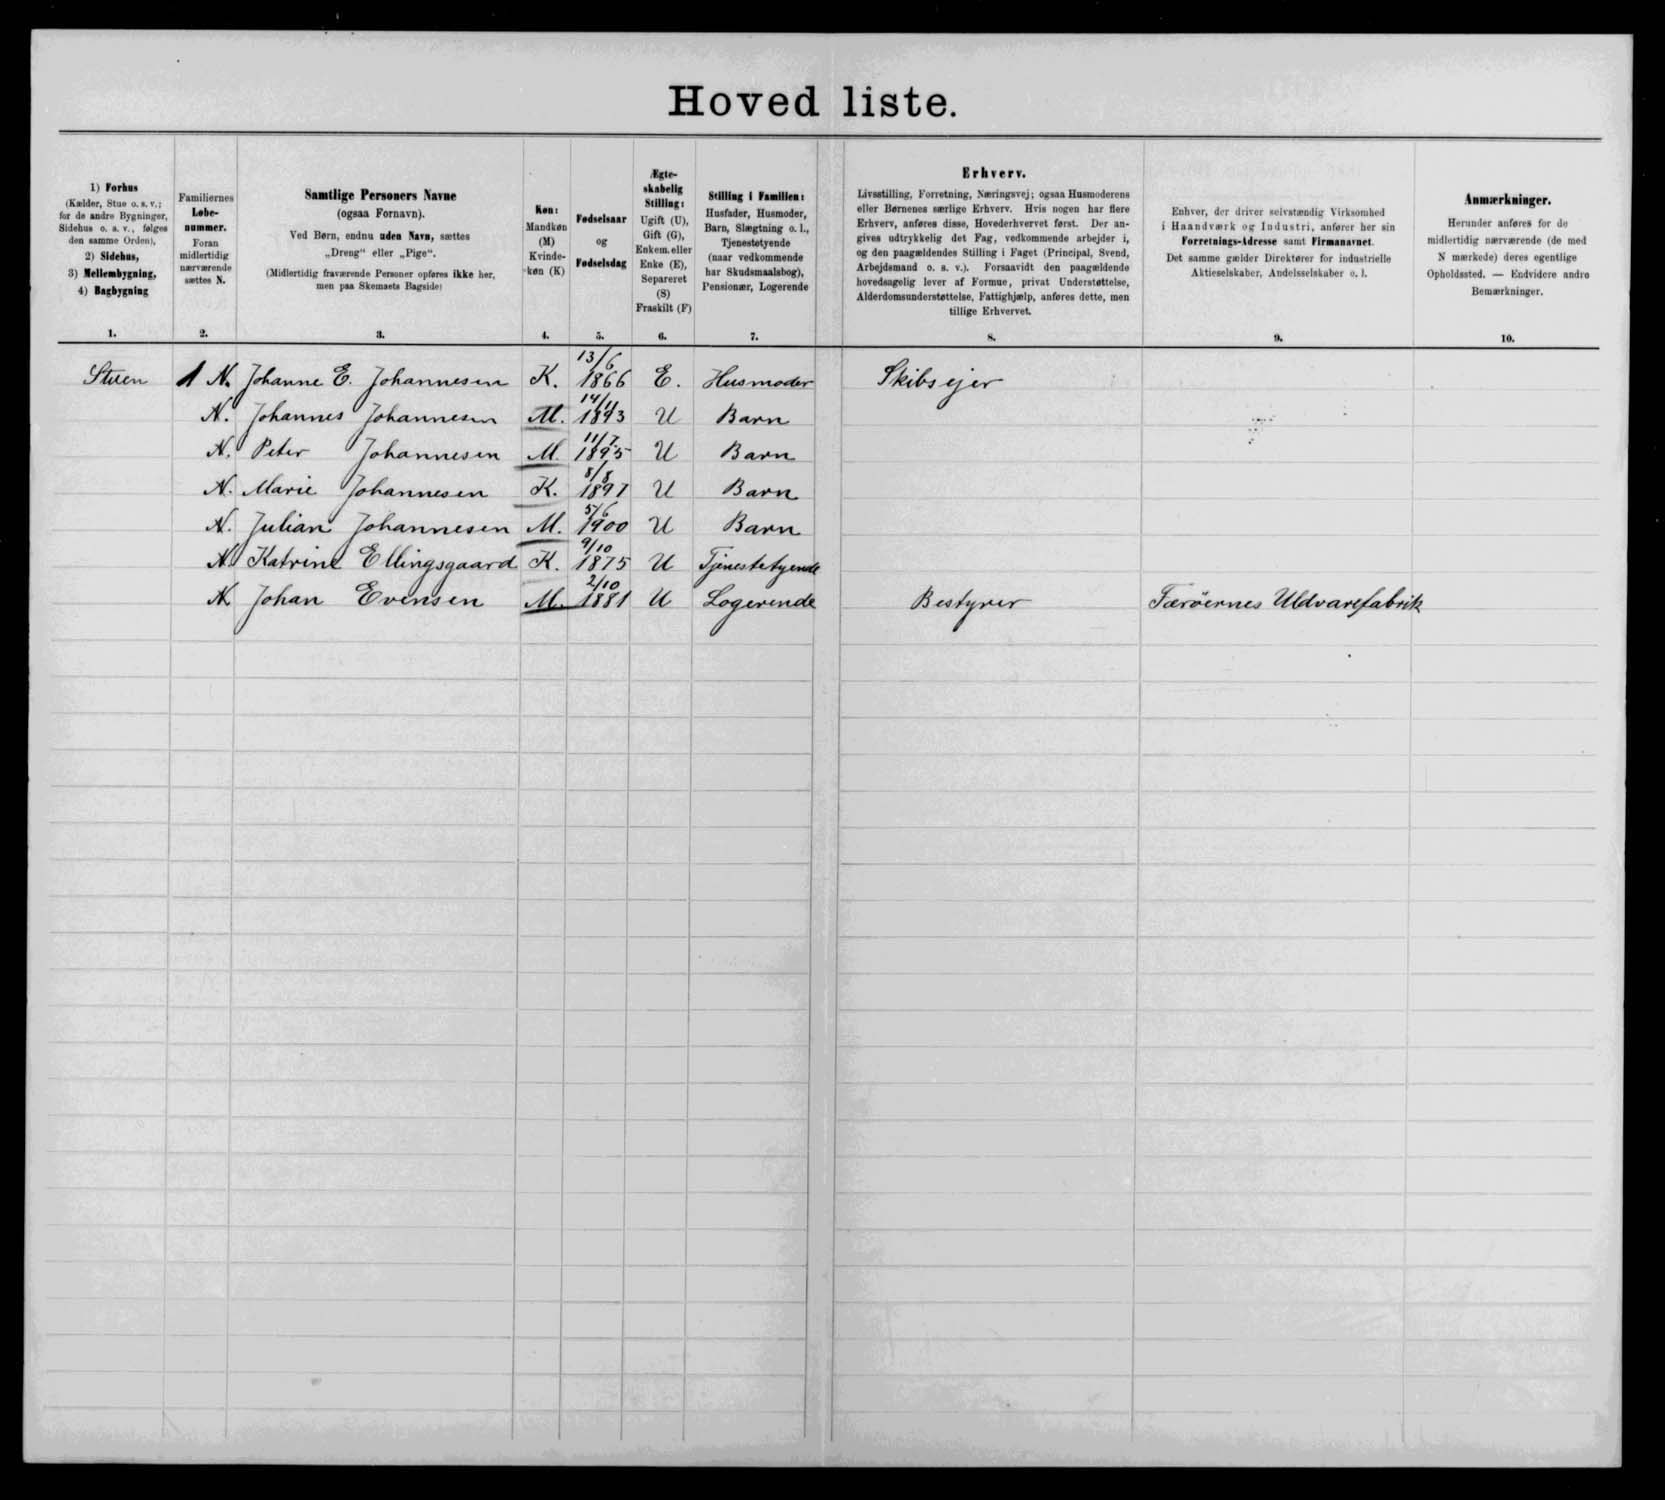 Hoved liste.
1) Forhus
(Kælder, Stue o. s. v.;
for de andre Bygninger,
Sidehus o. s. v., følges
den samme Orden),
2) Sidehus,
3) Mellembygning,
4) Bagbygning
1.
Familiernes
Løbe-
nummer.
Foran
midlertidig
nærværende
sættes N.
2.
Samtlige Personers Navne
(ogsaa Fornavn).
Ved Børn, endnu uden Navn, sættes
„Dreng" eller „Pige".
(Midlertidig fraværende Personer opføres ikke her,
men paa Skemaets Bagside)
3.
Køn:
Mandkøn
(M)
Kvinde-
køn (K)
4.
Fødselsaar
og
Fødselsdag
5.
Ægte-
skabelig
Stilling:
Ugift (U),
Gift (G),
Enkem. eller
Enke (E),
Separeret
(S)
Fraskilt (F)
6.
Stilling i Familien:
Husfader, Husmoder,
Barn, Slægtning o. l.,
Tjenestetyende
(naar vedkommende
har Skudsmaalsbog),
Pensionær, Logerende
7.
Erhverv.
Livsstilling, Forretning, Næringsvej; ogsaa Husmoderens
eller Børnenes særlige Erhverv. Hvis nogen har flere
Erhverv, anføres disse, Hovederhvervet først. Der an-
gives udtrykkelig det Fag, vedkommende arbejder i,
og den paagældendes Stilling i Faget (Principal, Svend,
Arbejdsmand o. s. v.). Forsaavidt den paagældende
hovedsagelig lever af Formue, privat Understøttelse,
Alderdomsunderstøttelse, Fattighjælp, anføres dette, men
tillige Erhvervet.
8.
Enhver, der driver selvstændig Virksomhed
i Haandværk og Industri, anfører her sin
Forretnings-Adresse samt Firmanavnet.
Det samme gælder Direktører for industrielle
Aktieselskaber, Andelsselskaber o. l.
9.
Anmærkninger.
Herunder anføres for de
midlertidig nærværende (de med
N mærkede) deres egentlige
Opholdssted. — Endvidere andre
Bemærkninger.
10.
Stuen 1 N. Johanne E. Johannesen K. 13/6 1866 E. Husmoder Skibsejer
N. Johannes Johannesen M. 14/11 1893 U Barn
N. Peter Johannesen M. 11/7 1895 U Barn
N. Marie Johannesen K. 8/8 1897 U Barn
N. Julian Johannesen M. 5/6 1900 U Barn
N. Katrine Ellingsgaard K. 9/10 1875 U Tjenestetyende
N Johan Evensen M. 2/10 1881 U Logerende Bestyrer Færöernes Uldvarefabrik